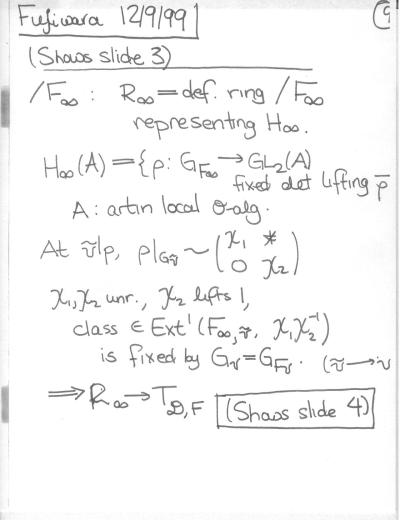 Fujiwara 12/9/99
9
(Shows slide 3)
/F∞ : R∞ = def. ring /F∞
representing H∞.
H∞(A) = {ρ: G_F∞ → GL₂(A)
fixed det lifting ρ̄
A : artin local O-alg.
At ṽ|p, ρ|G_ṽ ~ (χ₁ *
0 χ₂)
χ₁,χ₂ unr., χ₂ lifts 1,
class ∈ Ext¹(F∞,ṽ, χ₁χ₂⁻¹)
is fixed by G_v = G_F_v. (ṽ → v
⟹ R∞ → T_D,F (Shows slide 4)